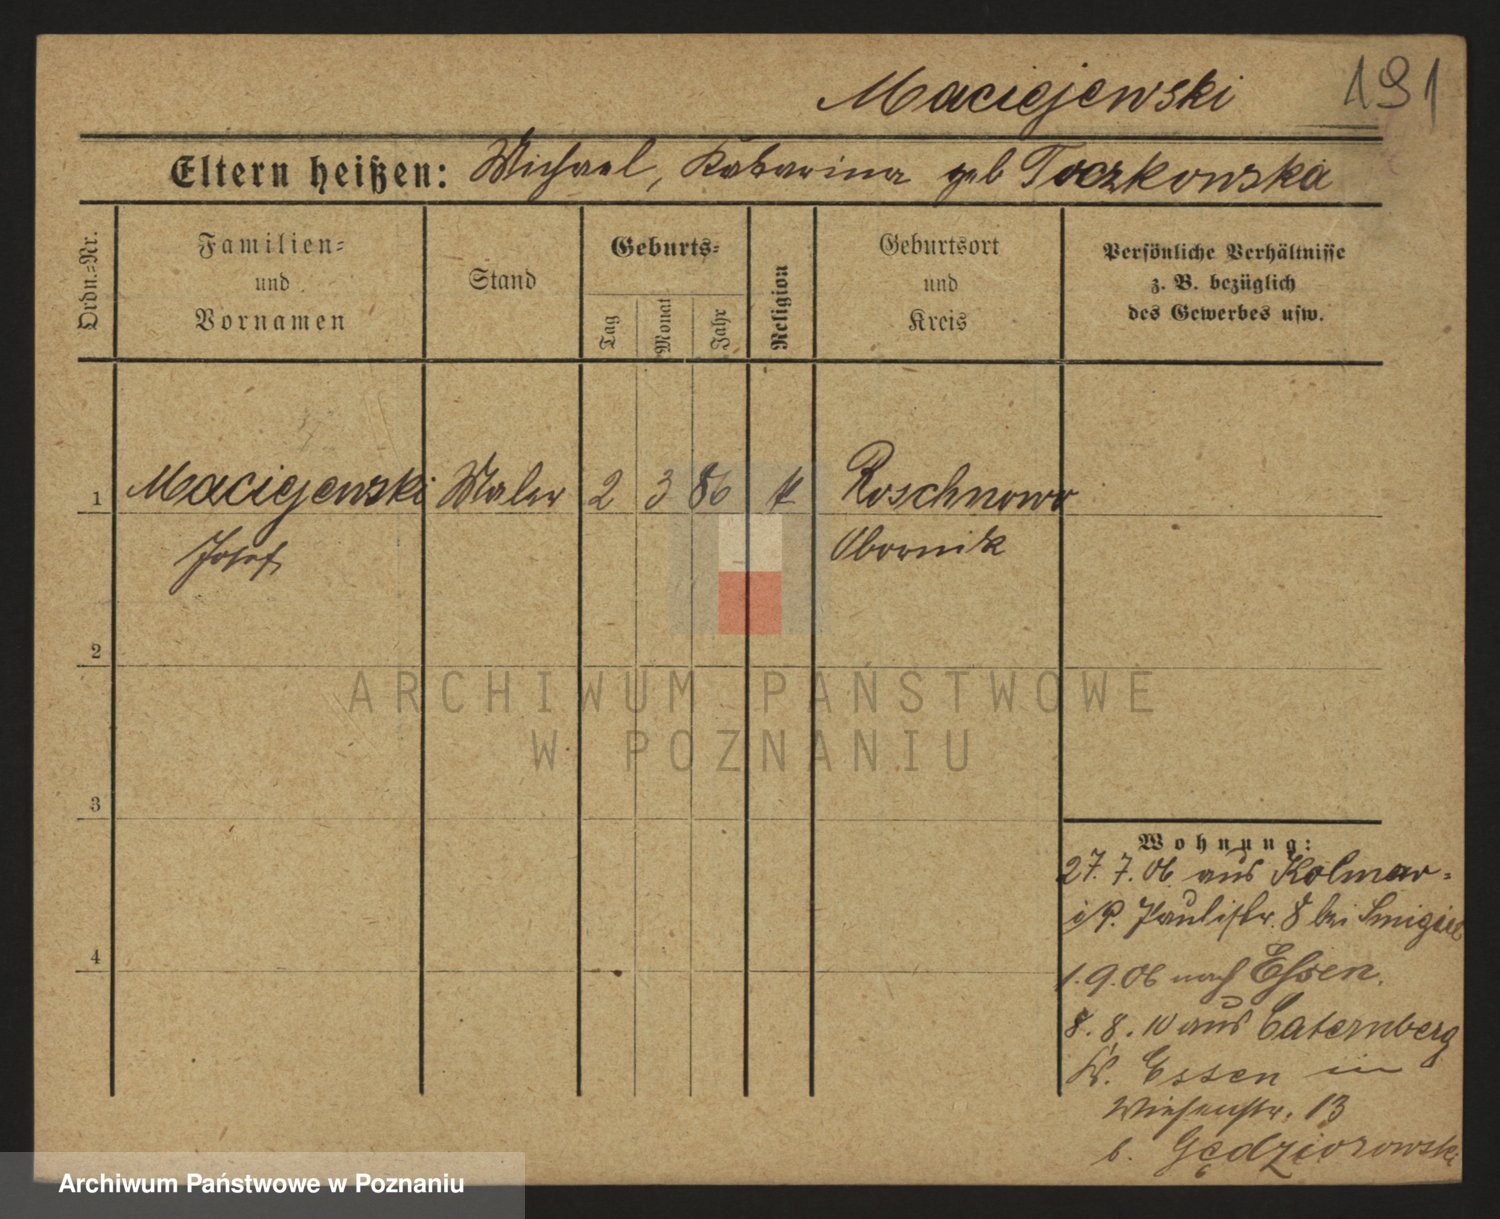 191
Maciejewski
Eltern heißen: Michael, Katarina geb Toczkowska
Ordn.=Nr.
Familien=
und
Vornamen
Stand
Geburts=
Tag
Monat
Jahr
Religion
Geburtsort
und
Kreis
Persönliche Verhältnisse
z. B. bezüglich
des Gewerbes usw.
1 Maciejewski Maler 2 3 86 k Roschnowo
Josef Obornik
2
3
4
Wohnung:
27.7.06. aus Kolmar=
i/P. Paulistr. 8 bei Smigiel
1.9.06 nach Essen.
8.8.10 aus Caternberg
K. Essen in
Wiesenstr. 13
b. Gędziorowski
ARCHIWUM PAŃSTWOWE
W POZNANIU
Archiwum Państwowe w Poznaniu